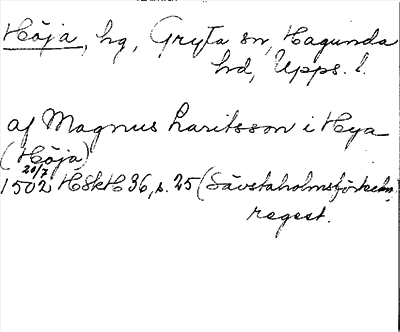 Höja, hg, Gryta sn, Hagunda
hd, Upps. l.
af Magnus Laritsson i Hya
(Höja)
20/7
1502 HSkH 36, s. 25 (Sävstaholmsförteckn.
regest.